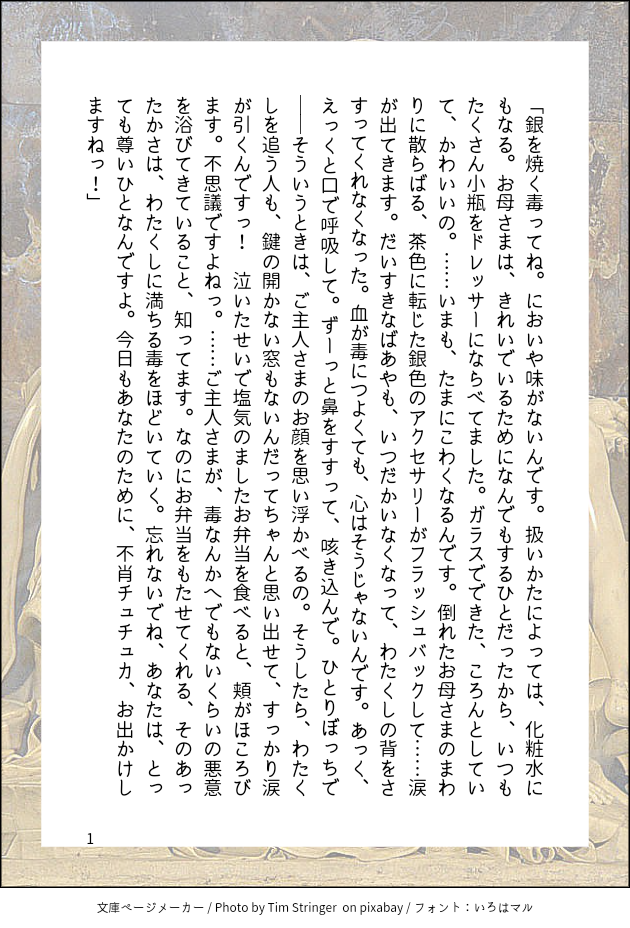 「銀を焼く毒ってね。においや味がないんです。扱いかたによっては、化粧水に
もなる。お母さまは、きれいでいるためになんでもするひとだったから、いつも
たくさん小瓶をドレッサーにならべてました。ガラスでできた、ころんとしてい
て、かわいいの。……いまも、たまにこわくなるんです。倒れたお母さまのまわ
りに散らばる、茶色に転じた銀色のアクセサリーがフラッシュバックして……涙
が出てきます。だいすきなばあやも、いつだかいなくなって、わたくしの背をさ
すってくれなくなった。血が毒につよくても、心はそうじゃないんです。あっく、
えっくと口で呼吸して。ずーっと鼻をすすって、咳き込んで。ひとりぼっちで
――そういうときは、ご主人さまのお顔を思い浮かべるの。そうしたら、わたく
しを追う人も、鍵の開かない窓もないんだってちゃんと思い出せて、すっかり涙
が引くんですっ！　泣いたせいで塩気のましたお弁当を食べると、頬がほころび
ます。不思議ですよねっ。……ご主人さまが、毒なんかへでもないくらいの悪意
を浴びてきていること、知ってます。なのにお弁当をもたせてくれる、そのあっ
たかさは、わたくしに満ちる毒をほどいていく。忘れないでね、あなたは、とっ
ても尊いひとなんですよ。今日もあなたのために、不肖チュチュカ、お出かけし
ますねっ！」
1
文庫ページメーカー / Photo by Tim Stringer on pixabay / フォント：いろはマル